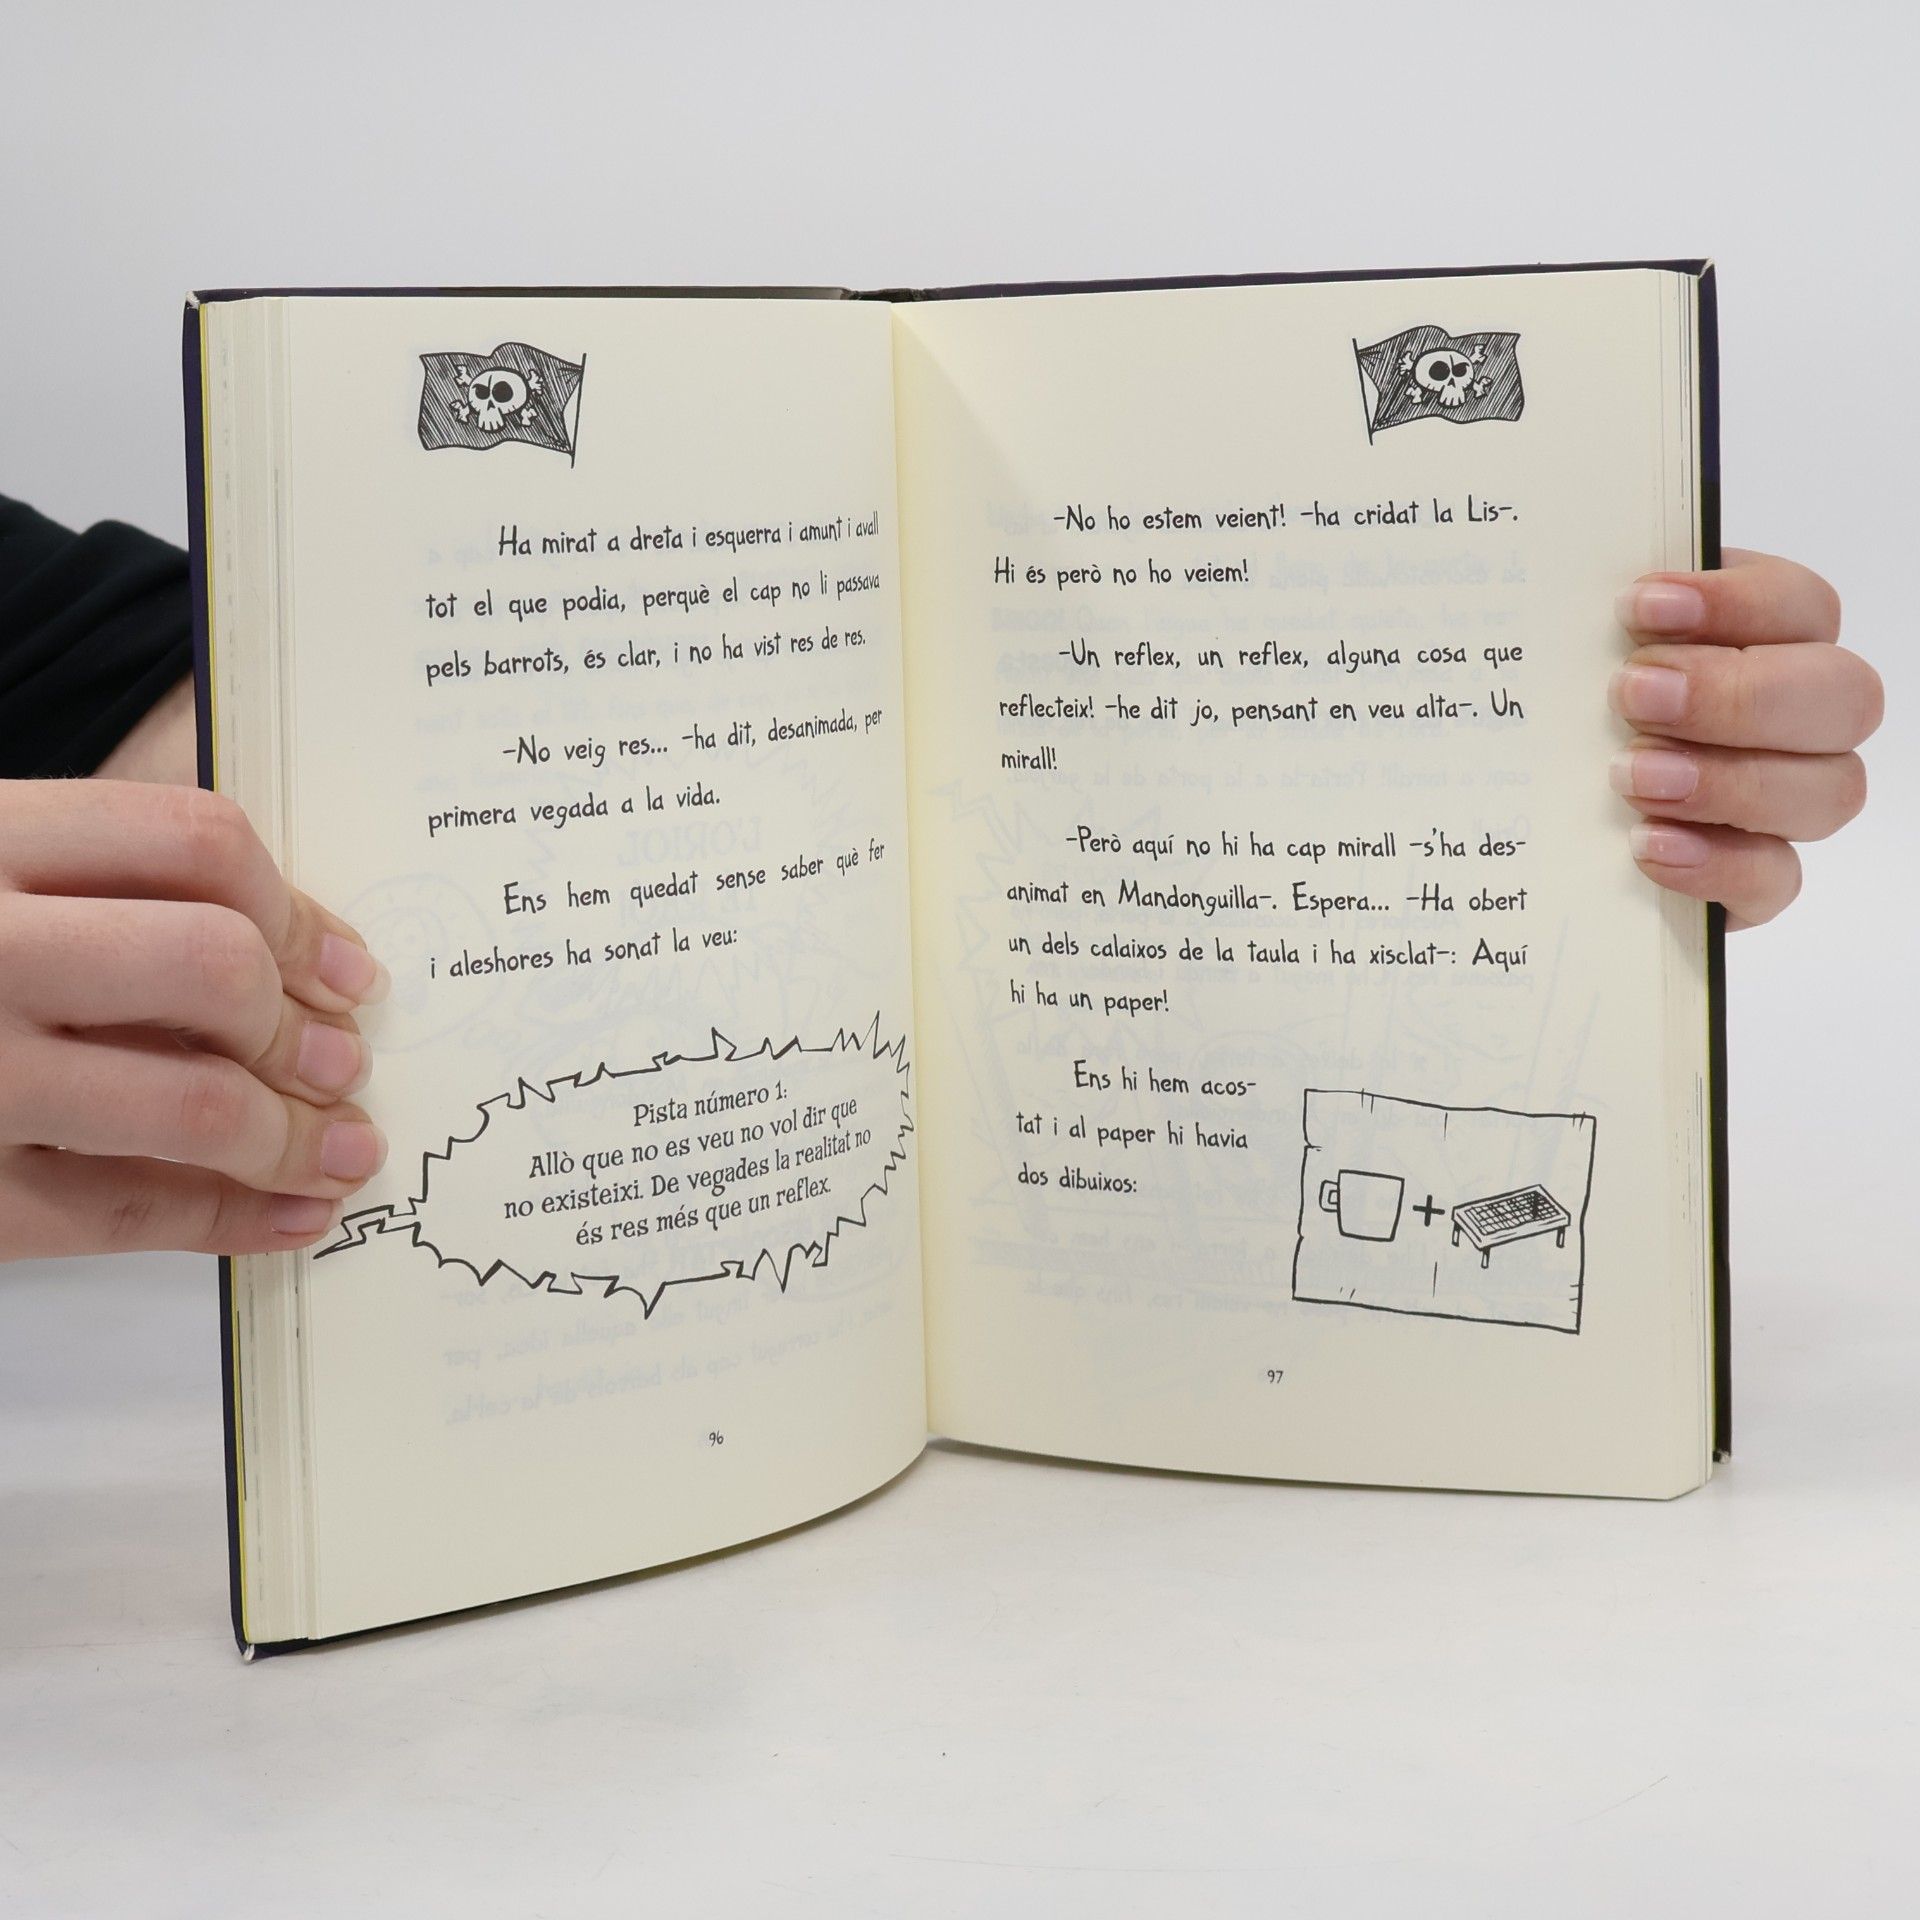 Ha mirat a dreta i esquerra i amunt i avall
tot el que podia, perquè el cap no li passava
pels barrots, és clar, i no ha vist res de res.
–No veig res... –ha dit, desanimada, per
primera vegada a la vida.
Ens hem quedat sense saber què fer
i aleshores ha sonat la veu:
Pista número 1:
Allò que no es veu no vol dir que
no existeixi. De vegades la realitat no
és res més que un reflex.
96
–No ho estem veient! –ha cridat la Lis–.
Hi és però no ho veiem!
–Un reflex, un reflex, alguna cosa que
reflecteix! –he dit jo, pensant en veu alta–. Un
mirall!
–Però aquí no hi ha cap mirall –s'ha des-
animat en Mandonguilla–. Espera... –Ha obert
un dels calaixos de la taula i ha xisclat–: Aquí
hi ha un paper!
Ens hi hem acos-
tat i al paper hi havia
dos dibuixos:
+
97